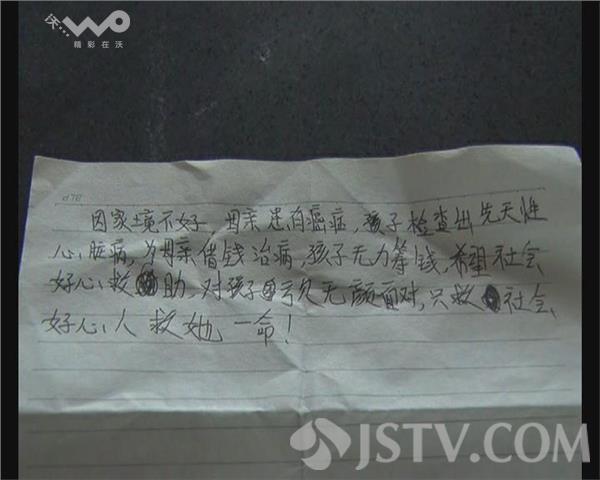 沃...
WO
精彩在沃
因家境不好 母亲患有癌症,孩子检查出先天性
心脏病,为母亲借钱治病,孩子无力筹钱,希望社会
好心救助,对孩子亏欠无颜面对,只救社会
好心人救她一命!
JSTV.COM